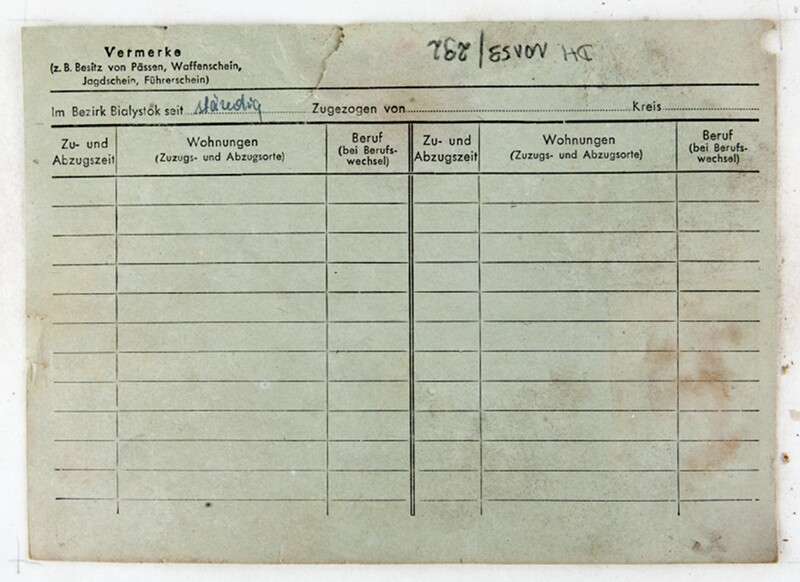 Vermerke
(z. B. Besitz von Pässen, Waffenschein,
Jagdschein, Führerschein)
Im Bezirk Bialystok seit ständig Zugezogen von Kreis
Zu- und Abzugszeit Wohnungen (Zuzugs- und Abzugsorte) Beruf (bei Berufs-wechsel) Zu- und Abzugszeit Wohnungen (Zuzugs- und Abzugsorte) Beruf (bei Berufs-wechsel)